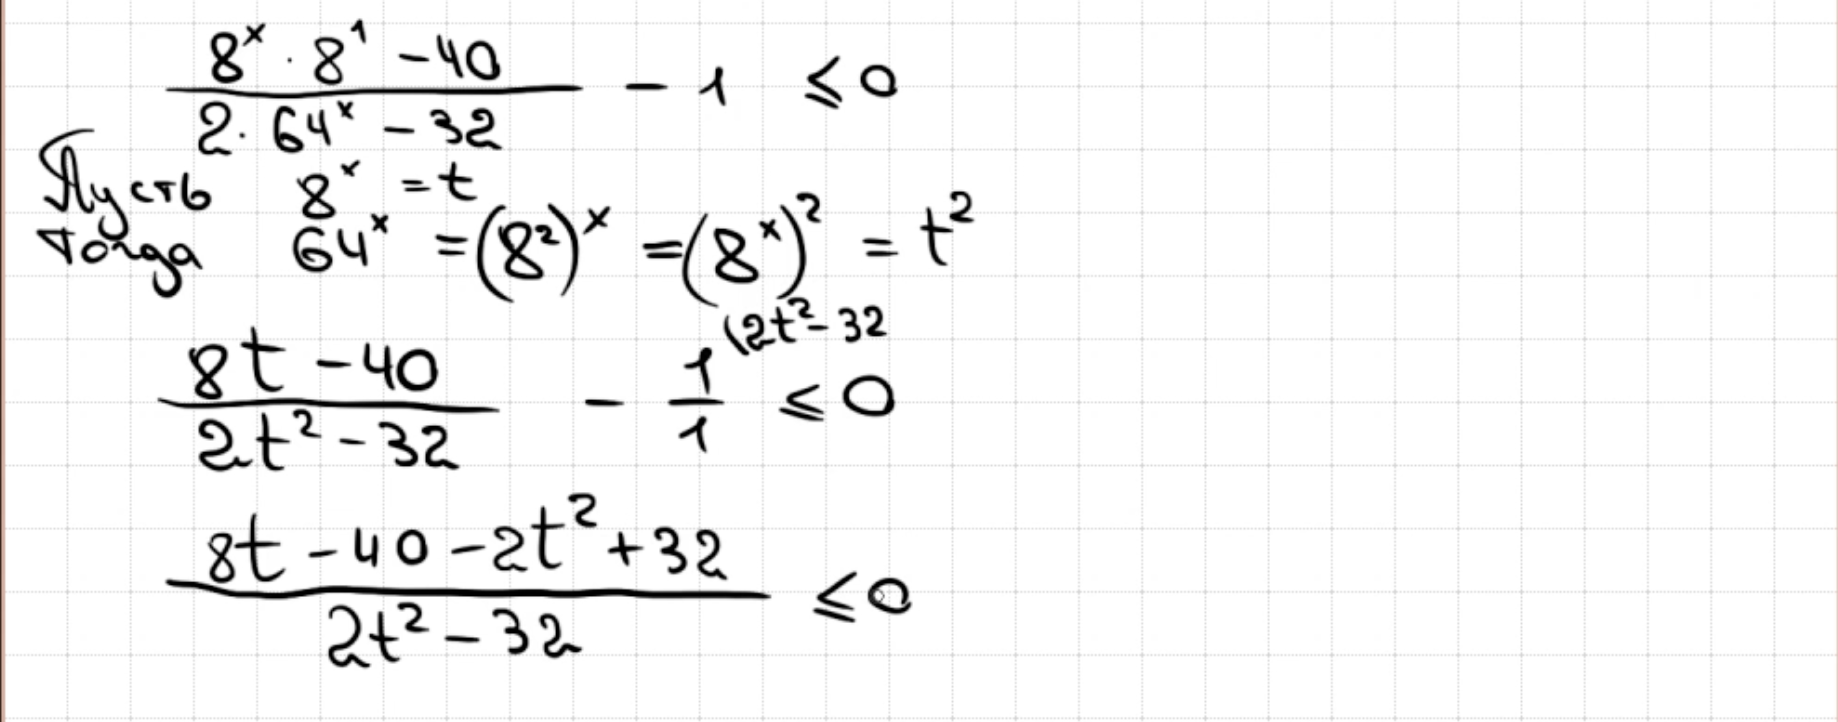 (8ˣ · 8¹ − 40)/(2 · 64ˣ − 32) − 1 ⩽ 0
Пусть 8ˣ = t
тогда 64ˣ = (8²)ˣ = (8ˣ)² = t²
(8t − 40)/(2t² − 32) − 1/1 \2t² − 32 ⩽ 0
(8t − 40 − 2t² + 32)/(2t² − 32) ⩽ 0